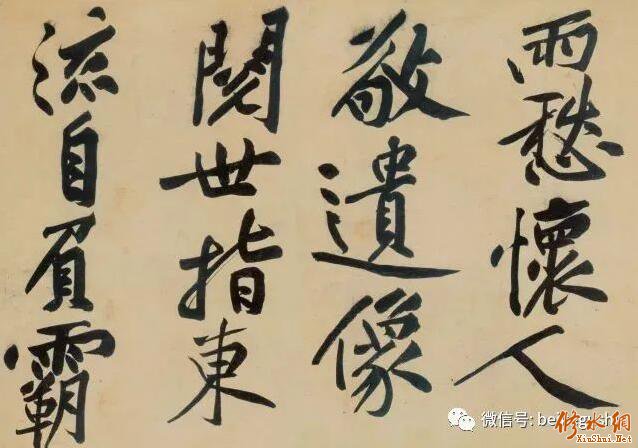 雨愁懷人
敬遺像
閱世指東
流自負霸
微信号: beijingxsh
修水網
XiuShui.Net